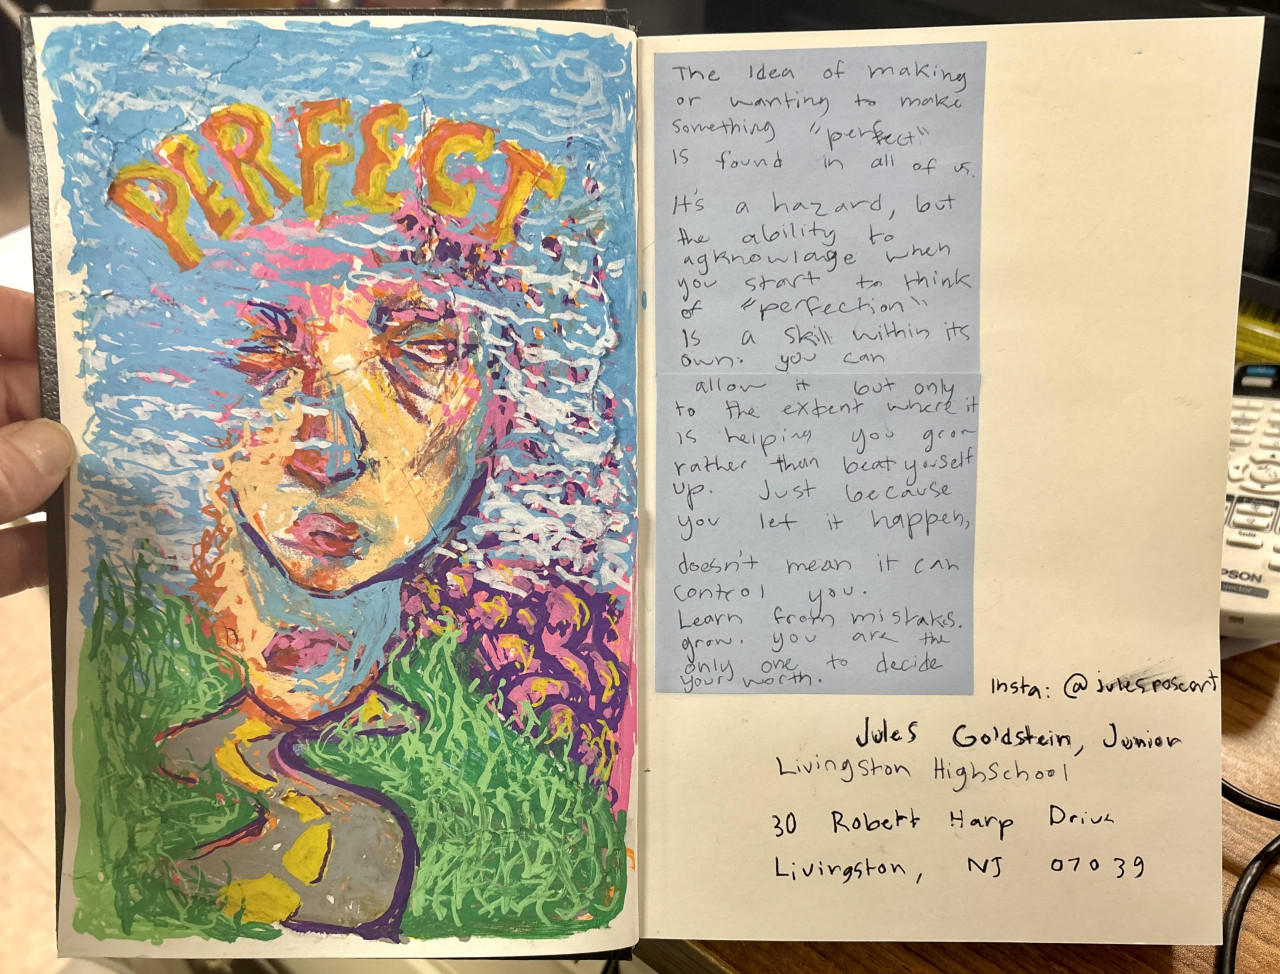 PERFECT
The Idea of making
or wanting to make
something "perfect"
Is found in all of us.
It's a hazard, but
the ability to
agknowlage when
you start to think
of "perfection"
Is a skill within its
own. you can
allow it but only
to the extent where it
is helping you grow
rather than beat yourself
up. Just because
you let it happen,
doesn't mean it can
control you.
Learn from mistakes.
grow. you are the
only one to decide
your worth.
Insta: @julesroseart
Jules Goldstein, Junior
Livingston HighSchool
30 Robert Harp Drive
Livingston, NJ 07039
PSON